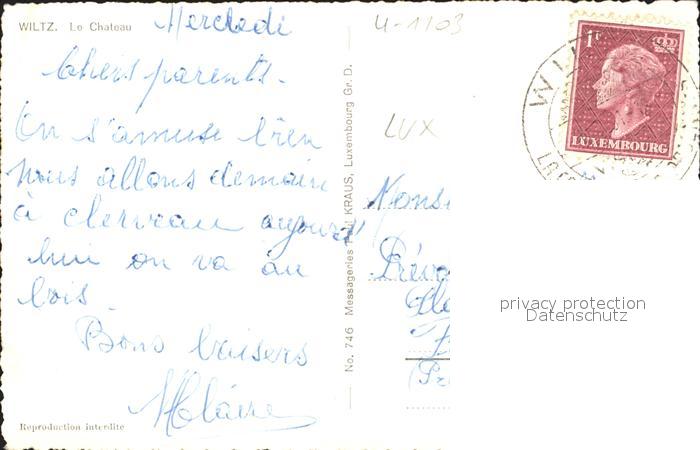 WILTZ. Le Chateau
Mercredi
Chers parents.
On s'amuse bien
nous allons demain
à clervau aujourd'
hui on va au
bois.
Bons baisers
Claire
Reproduction interdite
No. 746 Messageries KRAUS, Luxembourg Gr. D.
U-1103
LUX
1F
LUXEMBOURG
WIL
Monsi
(Pr
privacy protection
Datenschutz